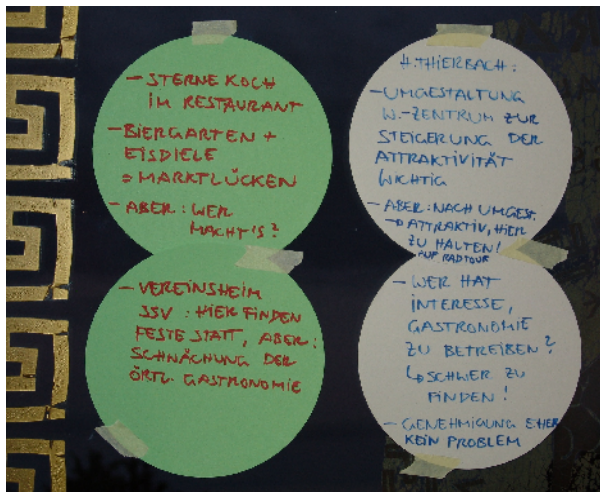 - STERNEKOCH
IM RESTAURANT
- BIERGARTEN +
EISDIELE
= MARKTLÜCKEN
- ABER: WER
MACHT'S?
- VEREINSHEIM
SSV: HIER FINDEN
FESTE STATT, ABER:
SCHWÄCHUNG DER
ÖRTL. GASTRONOMIE
H. THIERBACH:
- UMGESTALTUNG
W.-ZENTRUM ZUR
STEIGERUNG DER
ATTRAKTIVITÄT
WICHTIG
- ABER: NACH UMGEST.
→ ATTRAKTIV, HIER
ZU HALTEN!
AUF RADTOUR
- WER HAT
INTERESSE,
GASTRONOMIE
ZU BETREIBEN?
↳ SCHWER ZU
FINDEN!
- GENEHMIGUNG EHER
KEIN PROBLEM